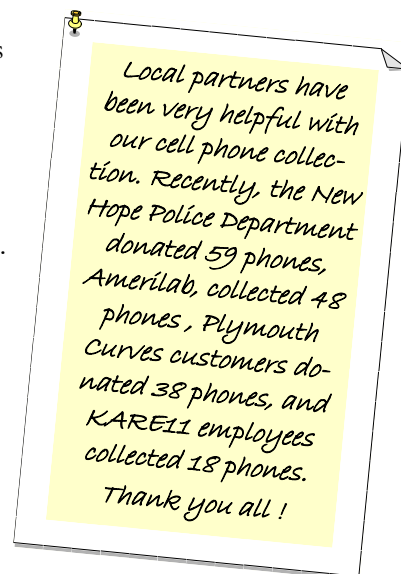 s
.
Local partners have
been very helpful with
our cell phone collec-
tion. Recently, the New
Hope Police Department
donated 59 phones,
Amerilab, collected 48
phones , Plymouth
Curves customers do-
nated 38 phones, and
KARE11 employees
collected 18 phones.
Thank you all !